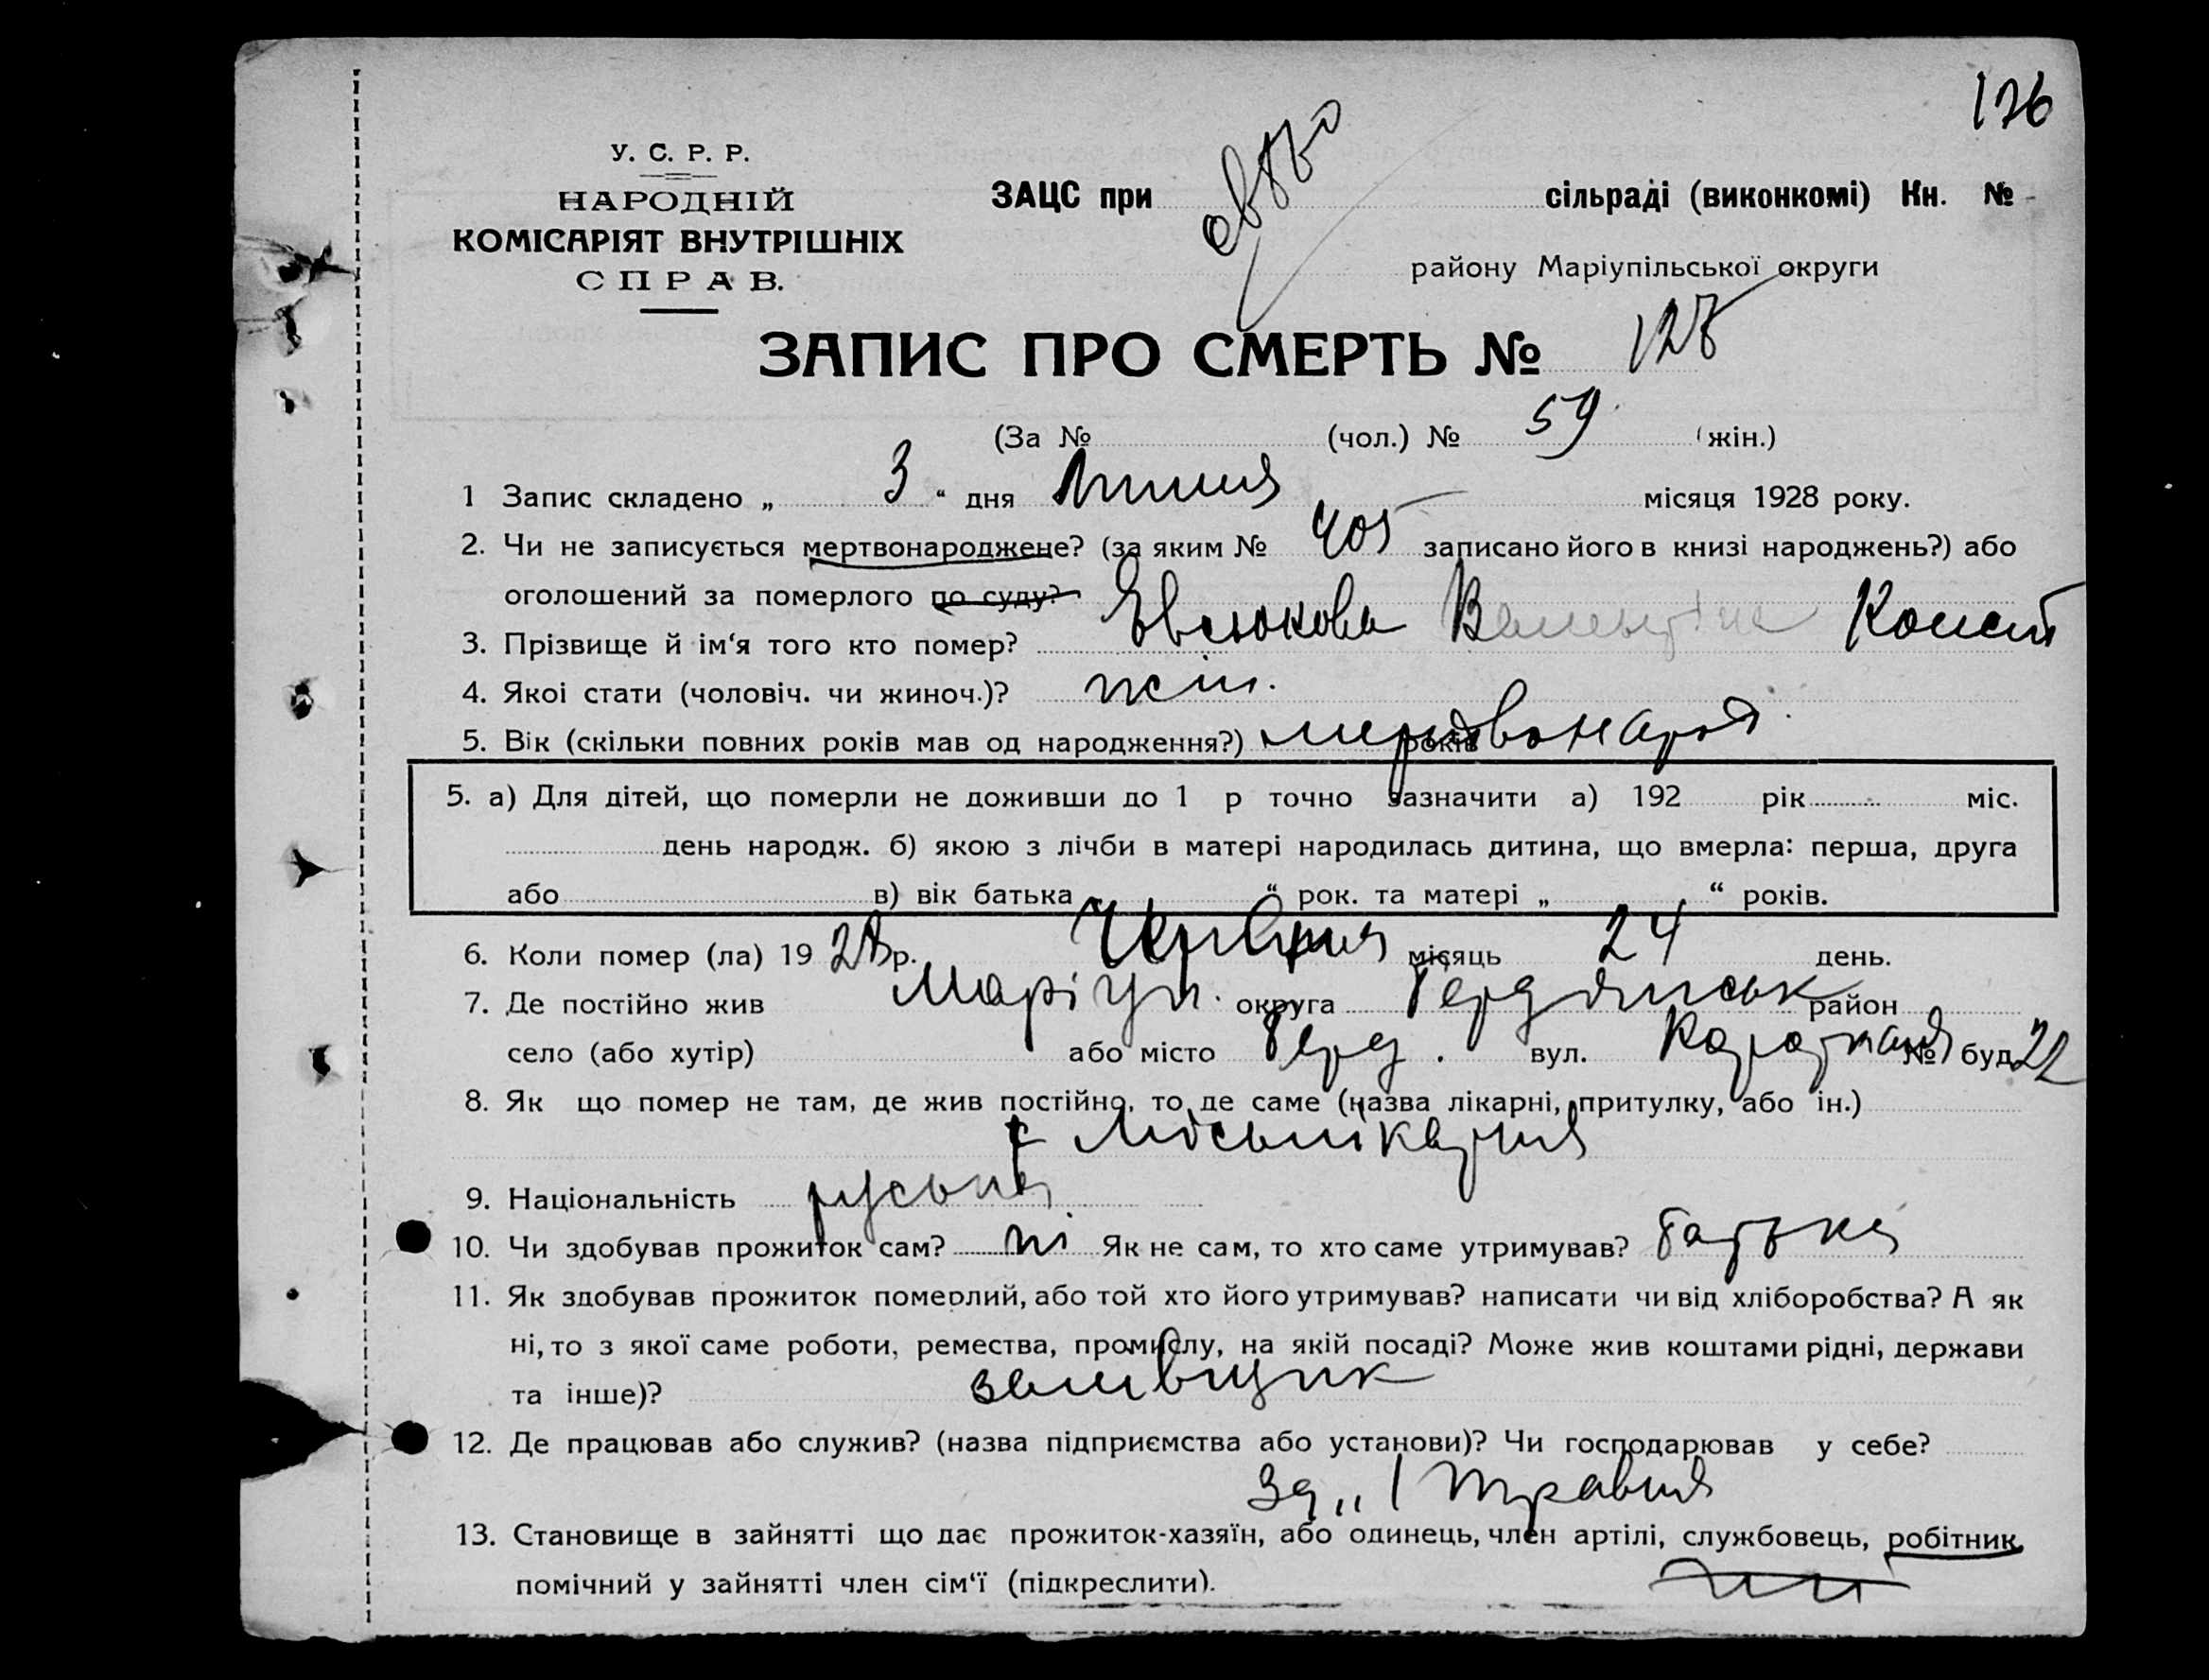 126
У. С. Р. Р.
НАРОДНІЙ
КОМІСАРІЯТ ВНУТРІШНІХ
СПРАВ.
ЗАЦС при сільраді (виконкомі) Кн. №
району Маріупільської округи
ЗАПИС ПРО СМЕРТЬ № 128
(За № (чол.) № 59 (жін.)
1 Запис складено „ 3 “ дня Липня місяця 1928 року.
2. Чи не записується мертвонароджене? (за яким № 405 записано його в книзі народжень?) або
оголошений за померлого по суду?
3. Прізвище й ім‘я того кто помер? Євсюкова Валентіна Конст
4. Якоі стати (чоловіч. чи жиноч.)? жін.
5. Вік (скільки повних років мав од народження?) мертвонарод років
5. а) Для дітей, що померли не доживши до 1 р точно зазначити а) 192 рік міс.
день народж. б) якою з лічби в матері народилась дитина, що вмерла: перша, друга
або в) вік батька „ “ рок. та матері „ “ років.
6. Коли помер (ла) 19 28 р. Червня місяць 24 день.
7. Де постійно жив Маріуп. округа Бердянськ район
село (або хутір) або місто Берд. вул. № буд 22
8. Як що помер не там, де жив постійно, то де саме (назва лікарні, притулку, або ін.)
Міськлікарня
9. Національність руська
10. Чи здобував прожиток сам? ні Як не сам, то хто саме утримував? батько
11. Як здобував прожиток померлий, або той хто його утримував? написати чи від хліборобства? А як
ні, то з якої саме роботи, ремества, промислу, на якій посаді? Може жив коштами рідні, держави
та інше)? заливщик
12. Де працював або служив? (назва підприємства або установи)? Чи господарював у себе?
Зд „ 1 Травня
13. Становище в зайнятті що дає прожиток-хазяїн, або одинець, член артілі, службовець, робітник
помічний у зайнятті член сім‘ї (підкреслити).